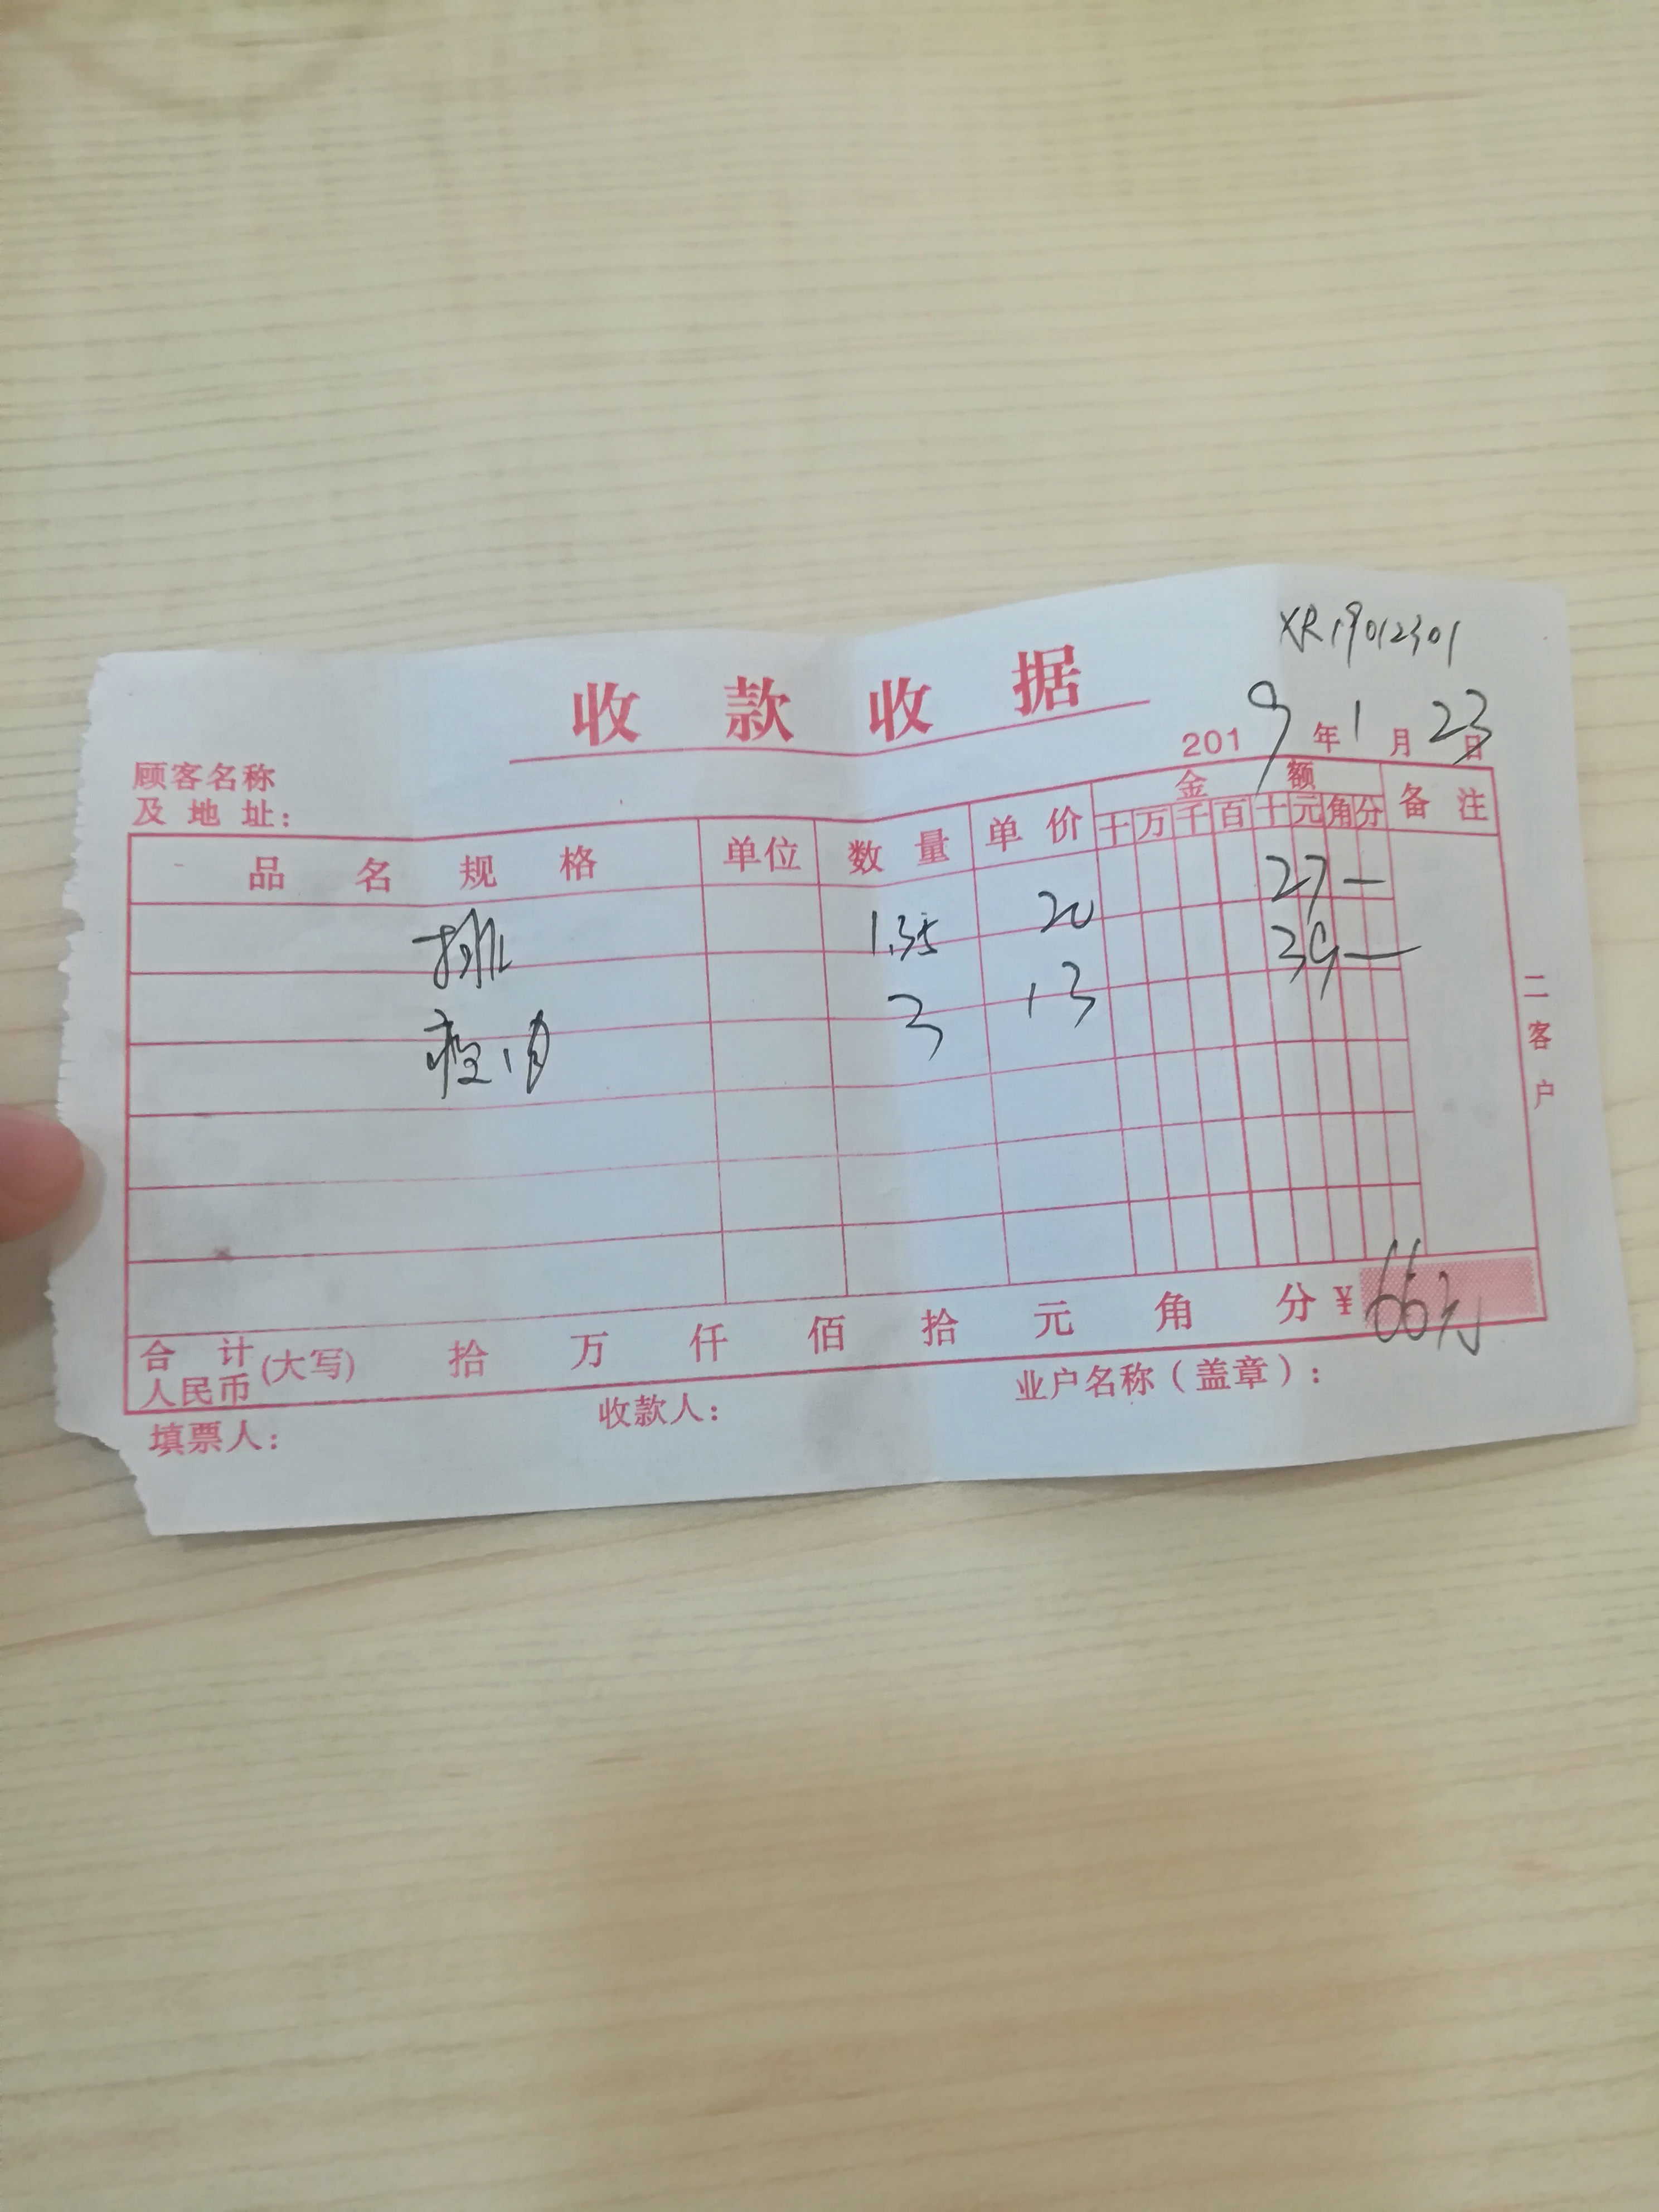 XR19012301
收款收据
2019年1月23日
顾客名称
及地址：
品名规格 单位 数量 单价 金额 备注
十万千百十元角分
排 1.35 20 27—
瘦肉 3 13 39—
合计人民币(大写) 拾 万 仟 佰 拾 元 角 分 ¥66元
填票人： 收款人： 业户名称（盖章）：
二客户